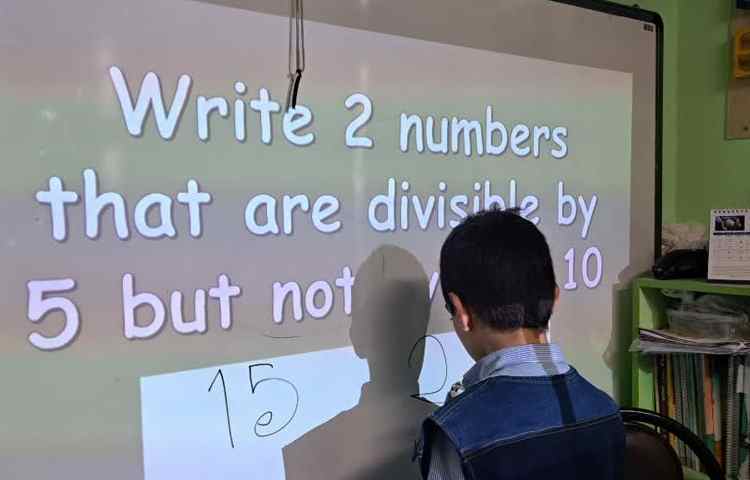 Write 2 numbers
that are divisible by
5 but not 10
15 2